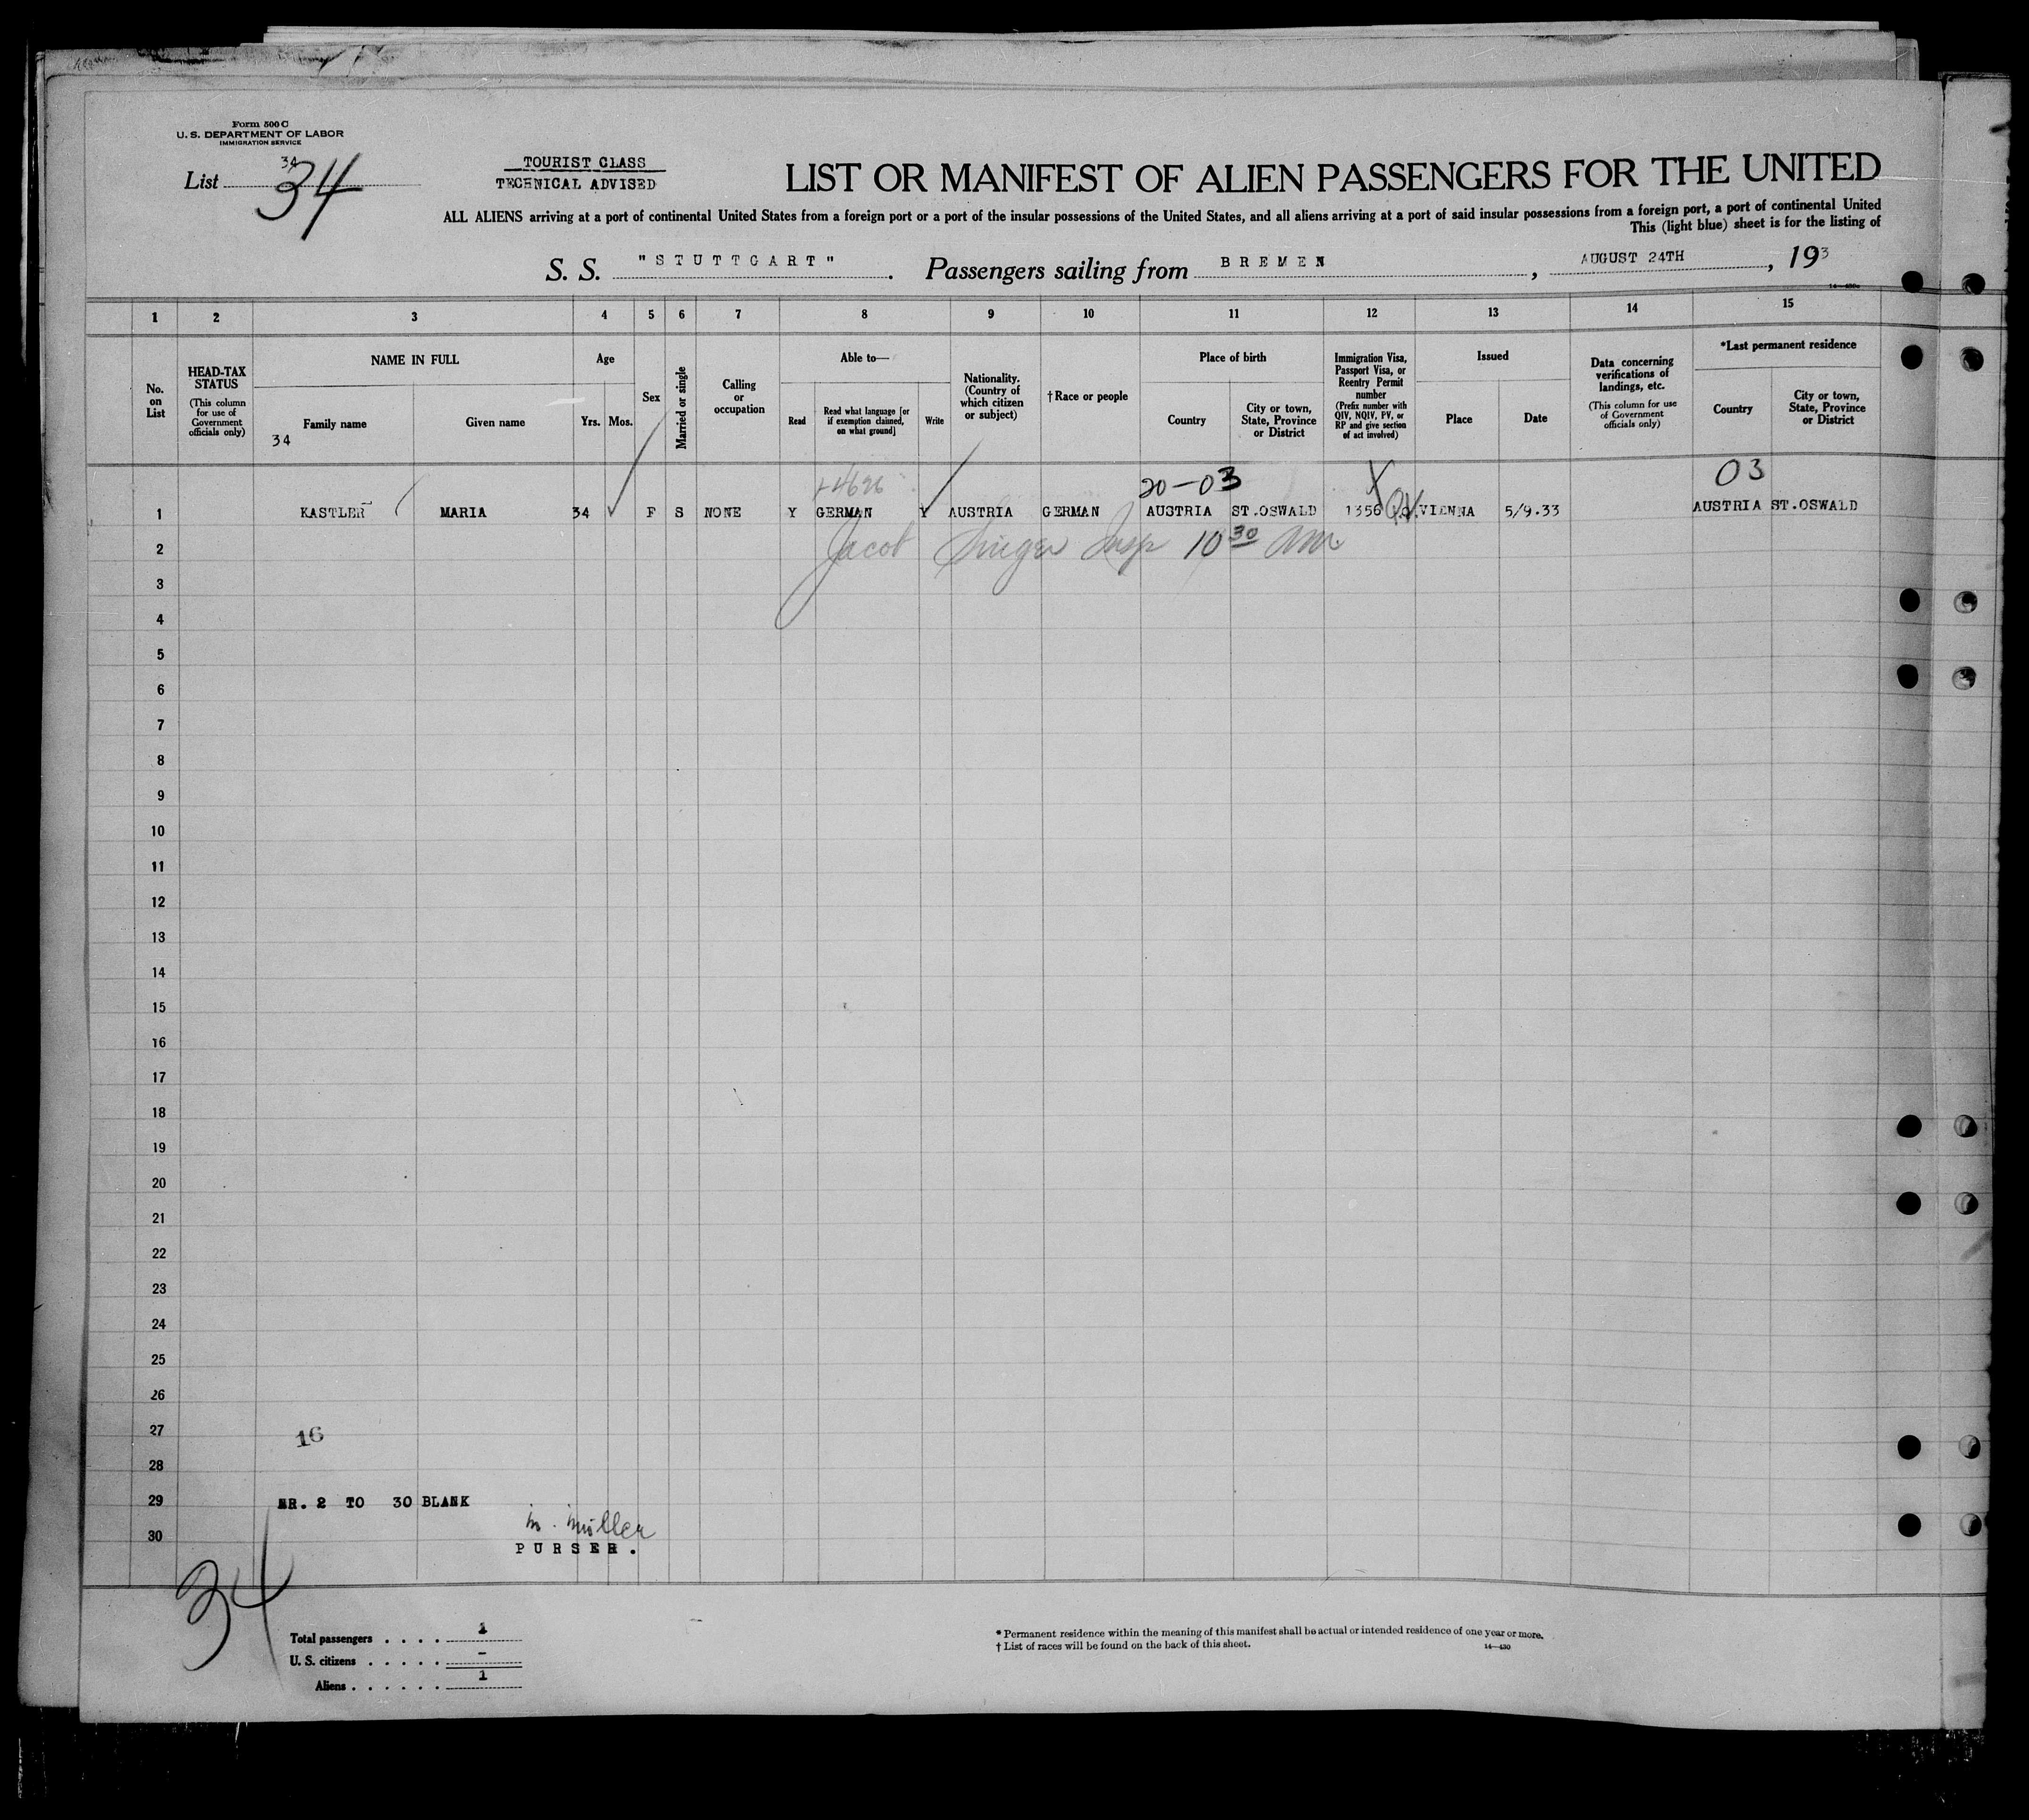 Form 500 C
U. S. DEPARTMENT OF LABOR
IMMIGRATION SERVICE
34
List 34
TOURIST CLASS
TECHNICAL ADVISED
LIST OR MANIFEST OF ALIEN PASSENGERS FOR THE UNITED
ALL ALIENS arriving at a port of continental United States from a foreign port or a port of the insular possessions of the United States, and all aliens arriving at a port of said insular possessions from a foreign port, a port of continental United
This (light blue) sheet is for the listing of
S. S. "STUTTGART". Passengers sailing from BREMEN, AUGUST 24TH, 193
1 2 3 4 5 6 7 8 9 10 11 12 13 14 15
No. on List
HEAD-TAX STATUS
(This column for use of Government officials only)
NAME IN FULL
Family name
34
Given name
Age
Yrs. Mos.
Sex
Married or single
Calling or occupation
Able to—
Read
Read what language [or if exemption claimed, on what ground]
Write
Nationality. (Country of which citizen or subject)
†Race or people
Place of birth
Country
City or town, State, Province or District
Immigration Visa, Passport Visa, or Reentry Permit number
(Prefix number with QIV, NQIV, PV, or RP and give section of act involved)
Issued
Place
Date
Data concerning verifications of landings, etc.
(This column for use of Government officials only)
*Last permanent residence
Country
City or town, State, Province or District
20-03
03
1 KASTLER MARIA 34 F S NONE Y GERMAN Y AUSTRIA GERMAN AUSTRIA ST.OSWALD 1356 VIENNA 5/9.33 AUSTRIA ST.OSWALD
Jacob Singer Insp 10 30 AM.
2
3
4
5
6
7
8
9
10
11
12
13
14
15
16
17
18
19
20
21
22
23
24
25
26
27
16
28
29 NR. 2 TO 30 BLANK
M. Müller
30
PURSER.
34
Total passengers . . . . 1
U. S. citizens . . . . . -
Aliens . . . . . . 1
* Permanent residence within the meaning of this manifest shall be actual or intended residence of one year or more.
† List of races will be found on the back of this sheet. 14—430